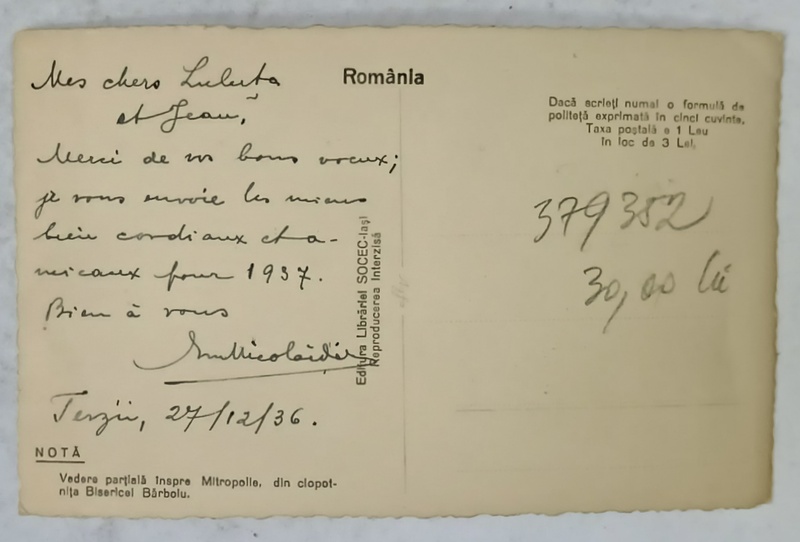 Mes chers Luluta
et Jean,
Merci de vos bons voeux;
je vous envoie les miens
bien cordiaux et a-
micaux pour 1937.
Bien à vous
Em Nicolaïdi
Terzii, 27/12/36.
NOTĂ
Vedere parțială înspre Mitropolie, din clopot-
nița Bisericei Bărboiu.
România
Editura Librăriei SOCEC-Iași
Reproducerea Interzisă
Dacă scrieți numai o formulă de
politeță exprimată în cinci cuvinte,
Taxa poștală e 1 Leu
în loc de 3 Lei.
379352
30,00 lei